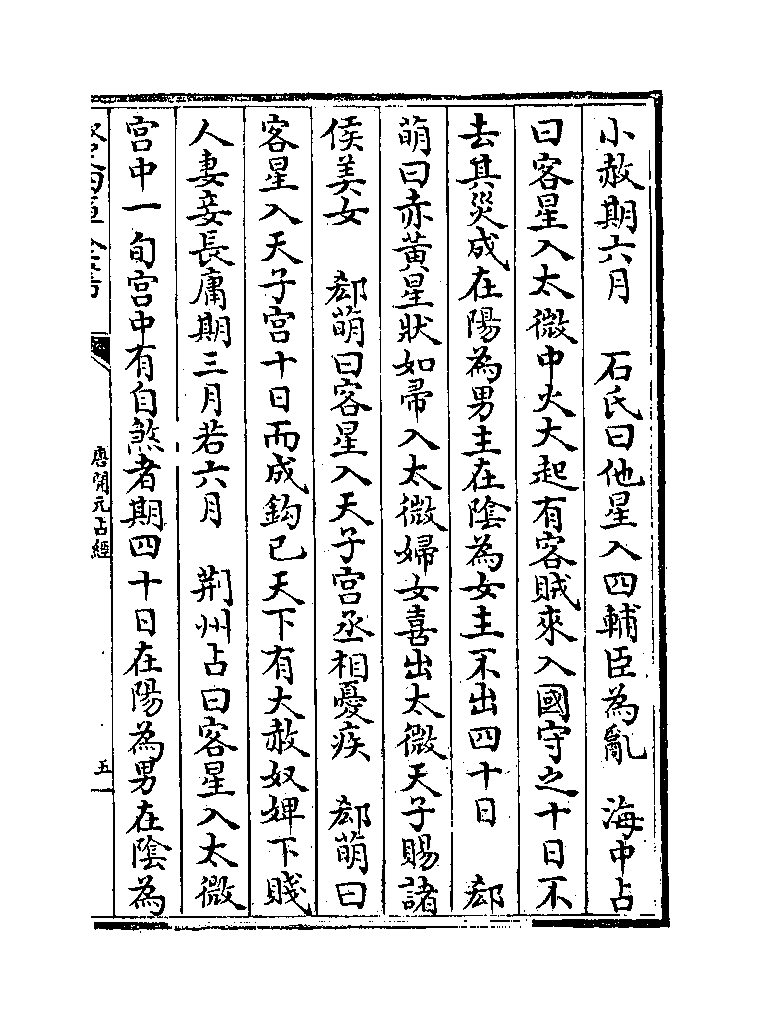 小赦期六月　石氏曰他星入四輔臣為亂　海中占
曰客星入太微中火大起有客賊來入國守之十日不
去其災成在陽為男主在陰為女主不出四十日　郄
萌曰赤黃星狀如帚入太微婦女喜出太微天子賜諸
侯美女　郄萌曰客星入天子宫丞相憂疾　郄萌曰
客星入天子宫十日而成鈎已天下有大赦奴婢下賤
人妻妾長庸期三月若六月　荆州占曰客星入太微
宫中一旬宫中有自煞者期四十日在陽為男在陰為
唐開元占經
五